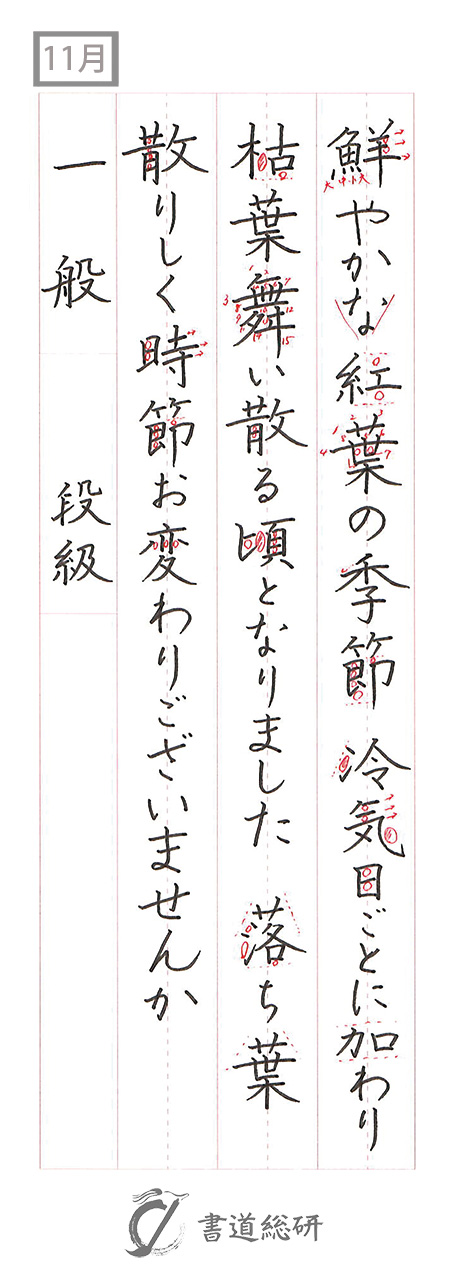 11月
鮮やかな紅葉の季節 冷気日ごとに加わり
枯葉舞い散る頃となりました 落ち葉
散りしく時節お変わりございませんか
一般 段級
書道総研